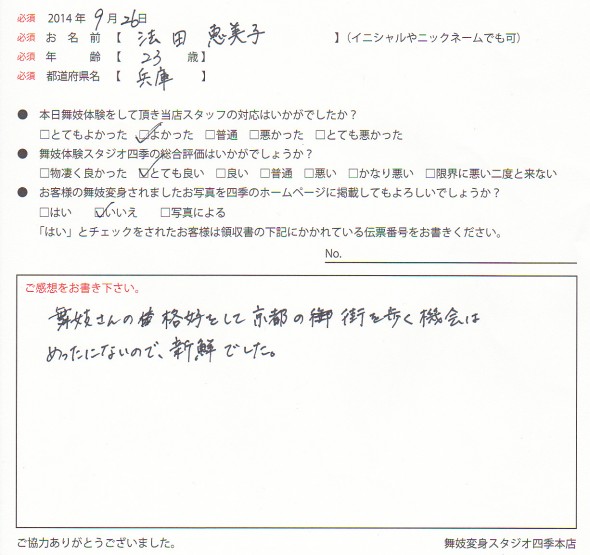 必須 2014年 9月26日
必須 お名前【 法田 恵美子 】(イニシャルやニックネームでも可)
必須 年齢【 23 歳】
必須 都道府県名【 兵庫 】
● 本日舞妓体験をして頂き当店スタッフの対応はいかがでしたか?
□とてもよかった ☑よかった □普通 □悪かった □とても悪かった
● 舞妓体験スタジオ四季の総合評価はいかがでしょうか?
□物凄く良かった ☑とても良い □良い □普通 □悪い □かなり悪い □限界に悪い二度と来ない
● お客様の舞妓変身されましたお写真を四季のホームページに掲載してもよろしいでしょうか?
□はい ☑いいえ □写真による
「はい」とチェックをされたお客様は領収書の下記にかかれている伝票番号をお書きください。
No.
ご感想をお書き下さい。
舞妓さんの格好をして京都の街を歩く機会は
めったにないので、新鮮でした。
ご協力ありがとうございました。 舞妓変身スタジオ四季本店